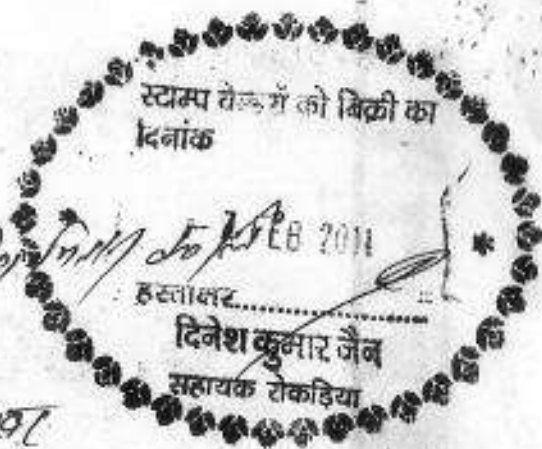 स्टाम्प वेन्डरों को बिक्री का
दिनांक
FEB 2011
हस्ताक्षर..................
दिनेश कुमार जैन
सहायक रोकड़िया